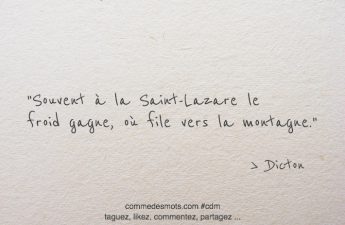 "Souvent à la Saint-Lazare le
froid gagne, où file vers la montagne."
> Dicton
commedesmots.com #cdm
taguez, likez, commentez, partagez ...